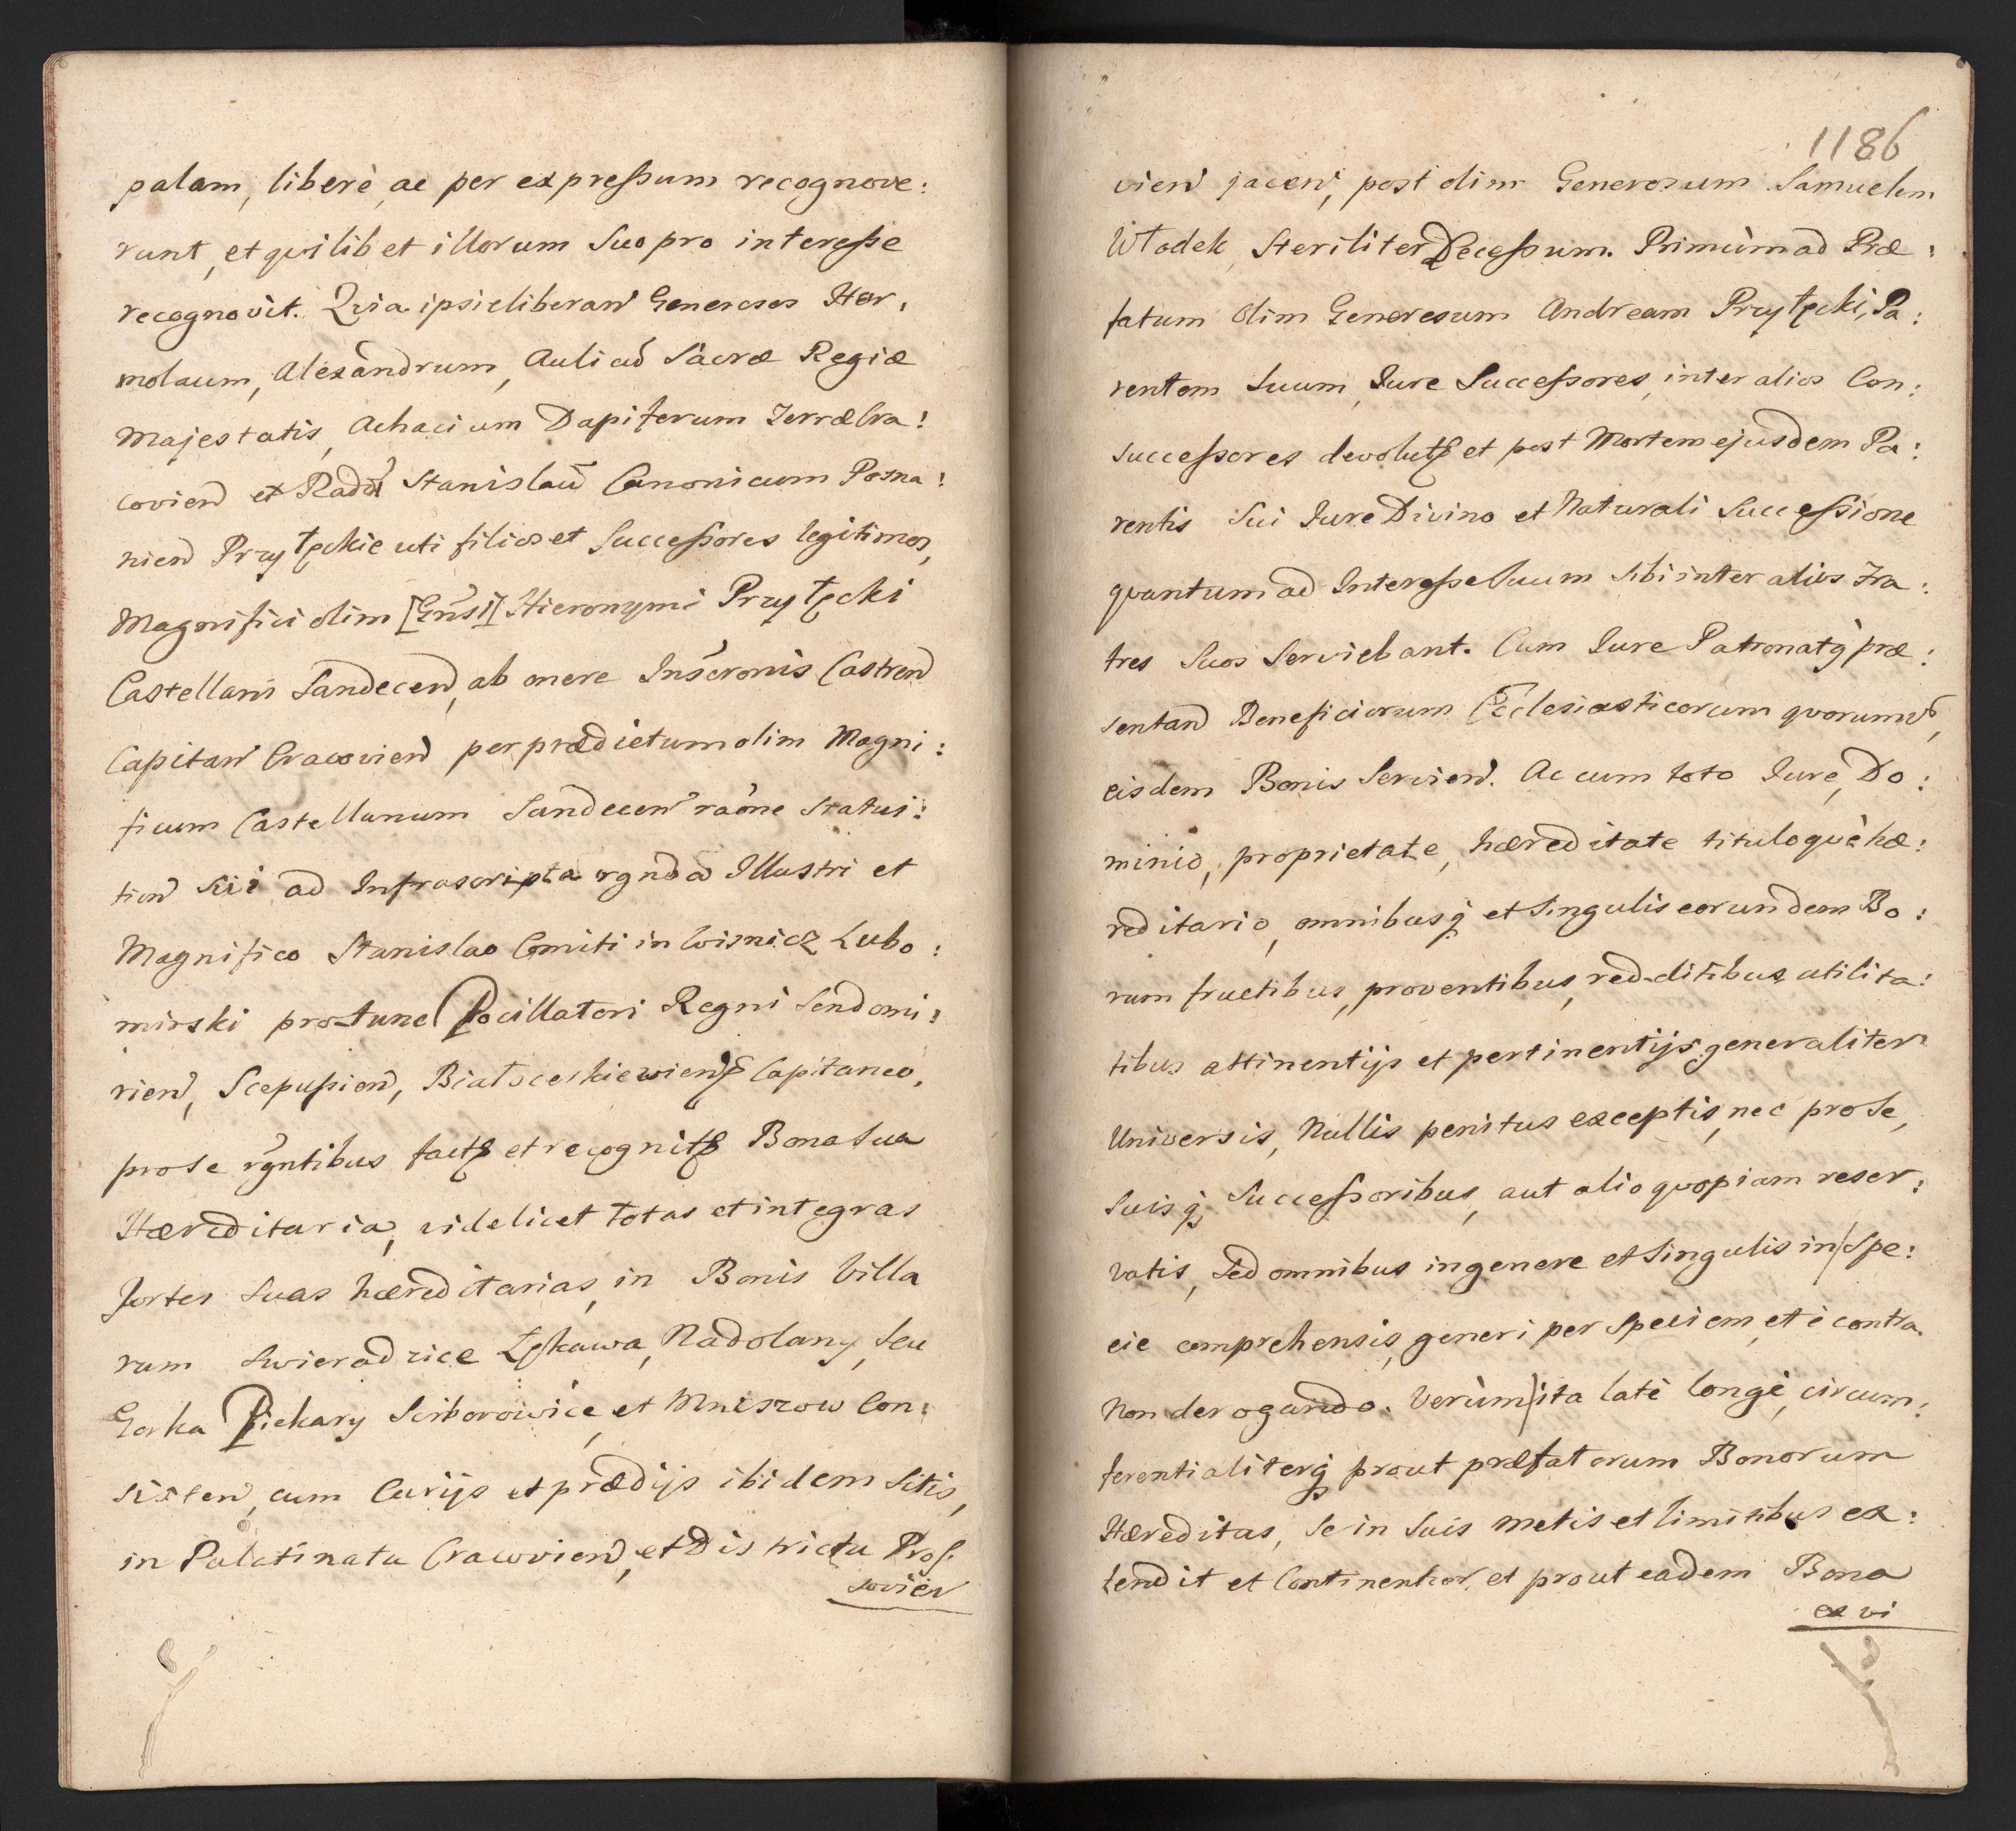 palam, liberè, ac per expreßum recognove:
runt, et quilibet illorum Suo pro intereße
recognovit. Quia ipsi liberarunt Generosos Her,
molaum, Alexandrum, Aulicũ Sacræ Regiæ
Majestatis, Achacium Dapiferum Terræ Cra:
covien et Radũ Stanislaũ Canonicum Posna:
nien Przyłęckie uti filios et Succeßores legitimos,
Magnifici olim [Gnsi] Hieronymi Przyłęcki
Castellani Sandecen, ab onere Inscronis Castren
Capitan Cracovien per prædictum olim Magni:
ficum Castellanum Sandecen raõne Statui:
tion Sui ad Infrascripta rgnda Illustri et
Magnifico Stanislao Comiti in Wisnicz Lubo:
mirski pro tunc Pocillatori Regni Sendomi:
rien, Scepusien, Białocerkiewien Capitaneo,
pro se rgntibus fact et recognit Bona Sua
Hæreditaria, videlicet totas et integras
Sortes Suas hæreditarias, in Bonis Villa
rum Swieradzice Łękawa, Nadolany, Seu
Gorka Piekary Sciborowice, et Mniszow Con:
sisten, cum Curijs et prædijs ibidem Sitis,
in Palatinatu Cracovien, et Districtu Pros:
sovien
1186
vien jacen, post olim Generosum Samuelem
Włodek, Steriliter Deceßum. Primùm ad Præ:
fatum olim Generosum Andream Przyłęcki, Pa:
rentem Suum, Jure Succeßores, inter alios Con:
succeßores devolut et post Mortem ejusdem Pa:
rentis Sui Jure Divino et Naturali Succeßione
quantum ad Intereße Suum Sibi inter alios Fra:
tres Suos Serviebant. Cum Jure Patronatq præ:
sentand Beneficiorum Ecclesiasticorum quorumvs,
eisdem Bonis Servien. Ac cum toto Jure, Do:
minio, proprietate, hæreditate tituloquè hæ:
reditario, omnibusq et Singulis eorundem Bo:
rum fructibus, proventibus, redditibus, utilita:
tibus attinentijs et pertinentijs generaliter
Universis, Nullis penitus exceptis, nec pro Se,
Suisq, Succeßoribus, aut alio quopiam reser:
vatis, Sed omnibus in genere et Singulis in Spe:
cie comprehensis, generi per Speciem, et è contra.
Non derogando. Verùm ita latè longè, circum:
ferentialiterq prout præfatorum Bonorum
Hæreditas, Se in Suis metis et limitibus ex:
tendit et Continentur, et prout eadem Bona
ex vi